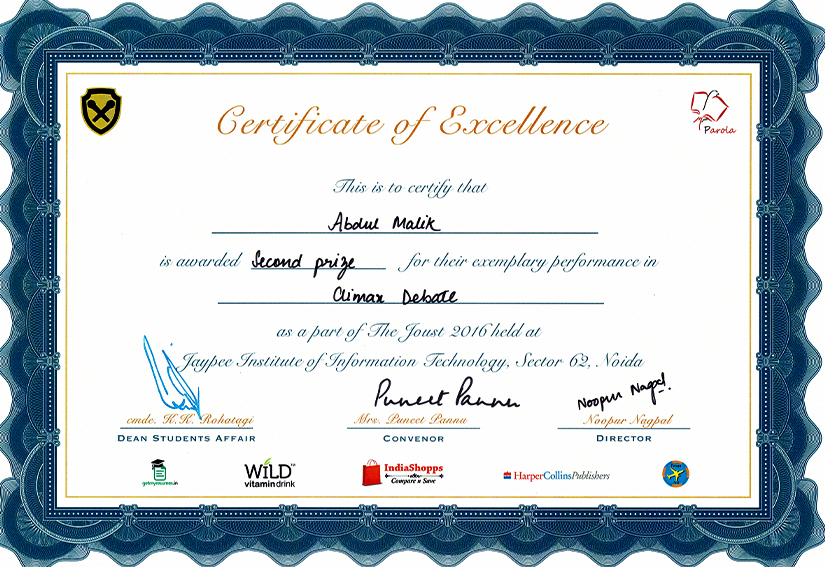 Certificate of Excellence
Parola
This is to certify that
Abdul Malik
is awarded Second prize for their exemplary performance in
Climax Debate
as a part of The Joust 2016 held at
Jaypee Institute of Information Technology, Sector 62, Noida
Puneet Pannu
Noopur Nagpal
cmde. K.K. Rohatagi
Mrs. Puneet Pannu
Noopur Nagpal
DEAN STUDENTS AFFAIR
CONVENOR
DIRECTOR
WiLD™
vitamin drink
IndiaShopps
Compare n Save
HarperCollinsPublishers